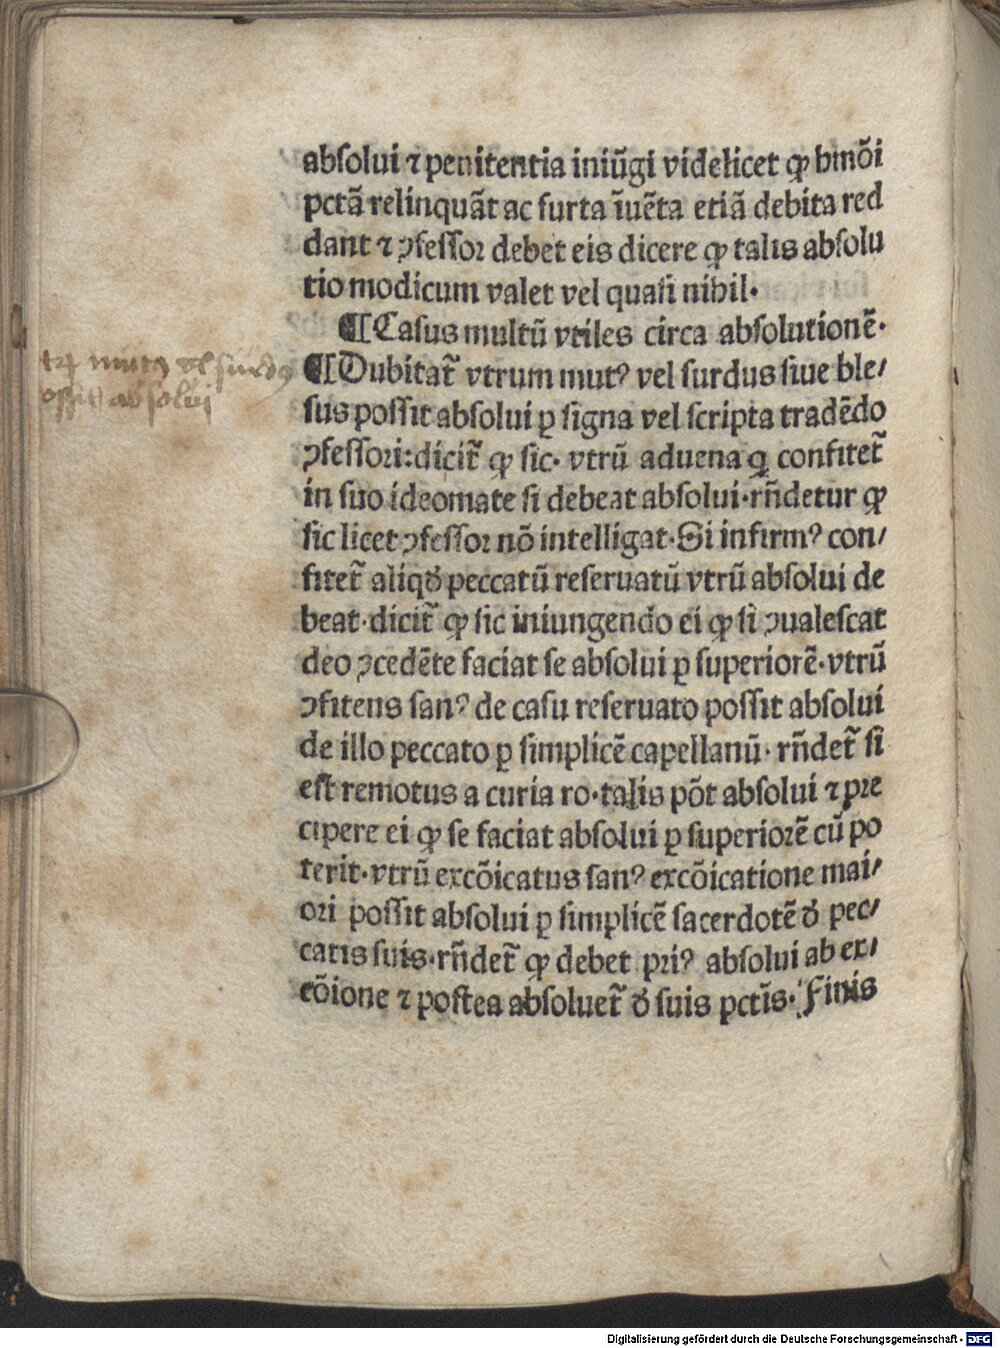 absolui ⁊ penitentia iniũgi videlicet ꝙ hmõi
pctã relinquãt ac furta ĩuẽta etiã debita red
dant ⁊ ꝯfessor debet eis dicere ꝙ talis absolu
tio modicum valet vel quasi nihil.
¶ Casus multũ vtiles circa absolutionẽ.
¶ Dubitat̃ vtrum mutꝰ vel surdus siue ble/
sus possit absolui ꝑ signa vel scripta tradẽdo
ꝯfessori: dicit̃ ꝙ sic. vtrũ aduena ꝗ confitet̃
in suo ideomate si debeat absolui. rñdetur ꝙ
sic licet ꝯfessor nõ intelligat. Si infirmꝰ con/
fitet̃ aliqđ peccatũ reseruatũ vtrũ absolui de
beat. dicit̃ ꝙ sic iniungendo ei ꝙ si ꝯualescat
deo ꝯcedẽte faciat se absolui ꝑ superiorẽ. vtrũ
ꝯfitens sanꝰ de casu reseruato possit absolui
de illo peccato ꝑ simplicẽ capellanũ. rñdet̃ si
est remotus a curia ro. talis põt absolui ⁊ pre
cipere ei ꝙ se faciat absolui ꝑ superiorẽ cũ po
terit. vtrũ excõicatus sanꝰ excõicatione mai/
ori possit absolui ꝑ simplicẽ sacerdotẽ đ pec/
catis suis. rñdet̃ ꝙ debet priꝰ absolui ab ex/
cõione ⁊ postea absoluet̃ đ suis pctĩs. Finis
mutꝰ vel surdꝰ
absolui
Digitalisierung gefördert durch die Deutsche Forschungsgemeinschaft - DFG